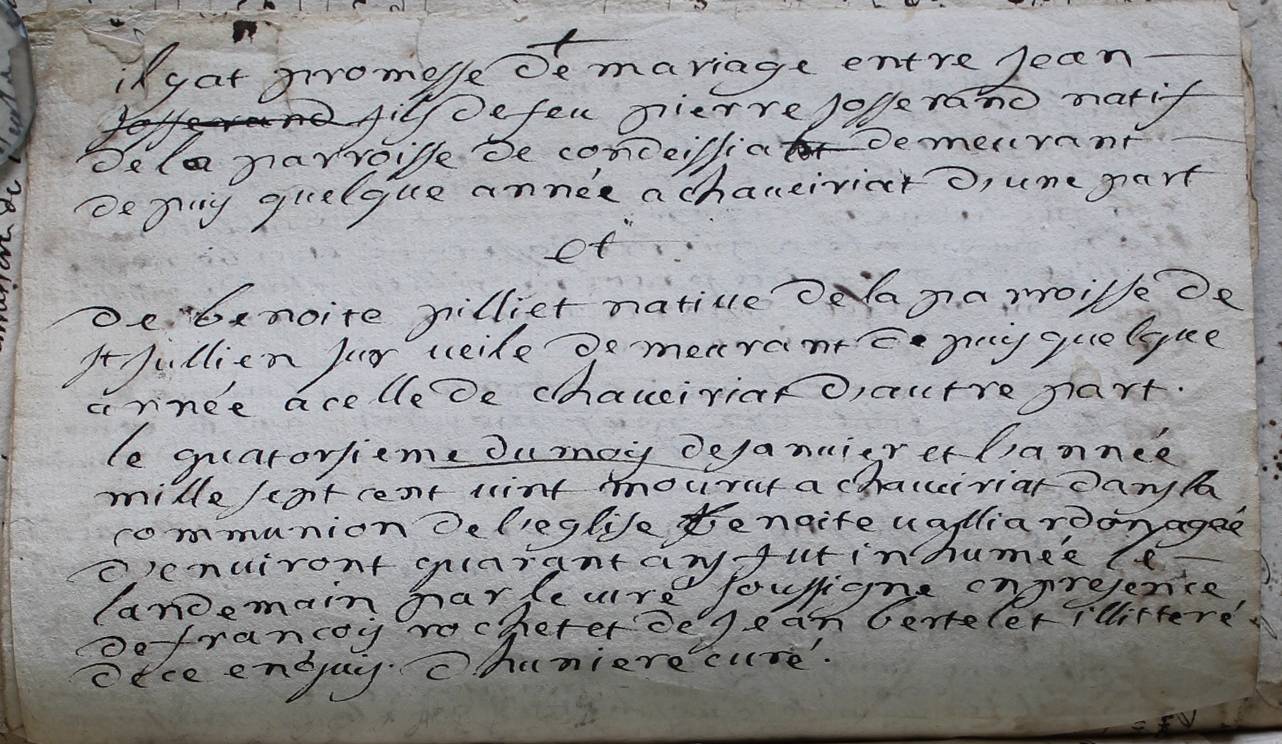 il y at promesse de mariage entre Jean
Josserand fils de feu pierre Josserand natif
de la parroisse de condeissiat demeurant
depuis quelque année a chaveiriat d'une part
et
de benoite pilliet natiue de la parroisse de
st Jullien sur ueile demeurant depuis quelque
année a celle de chaueiriat d'autre part.
le quatorsieme du moy de Januier et l'année
mille sept cent uint mourut a chaueiriat dans la
communion de l'eglise benoite ualliardon agée
d'enuiront quarant ans fut inhumée le
landemain par le curé soussigné en presence
de francoy rochet et de Jean bertelet illitteré
de ce enquis. Dhuniere curé.